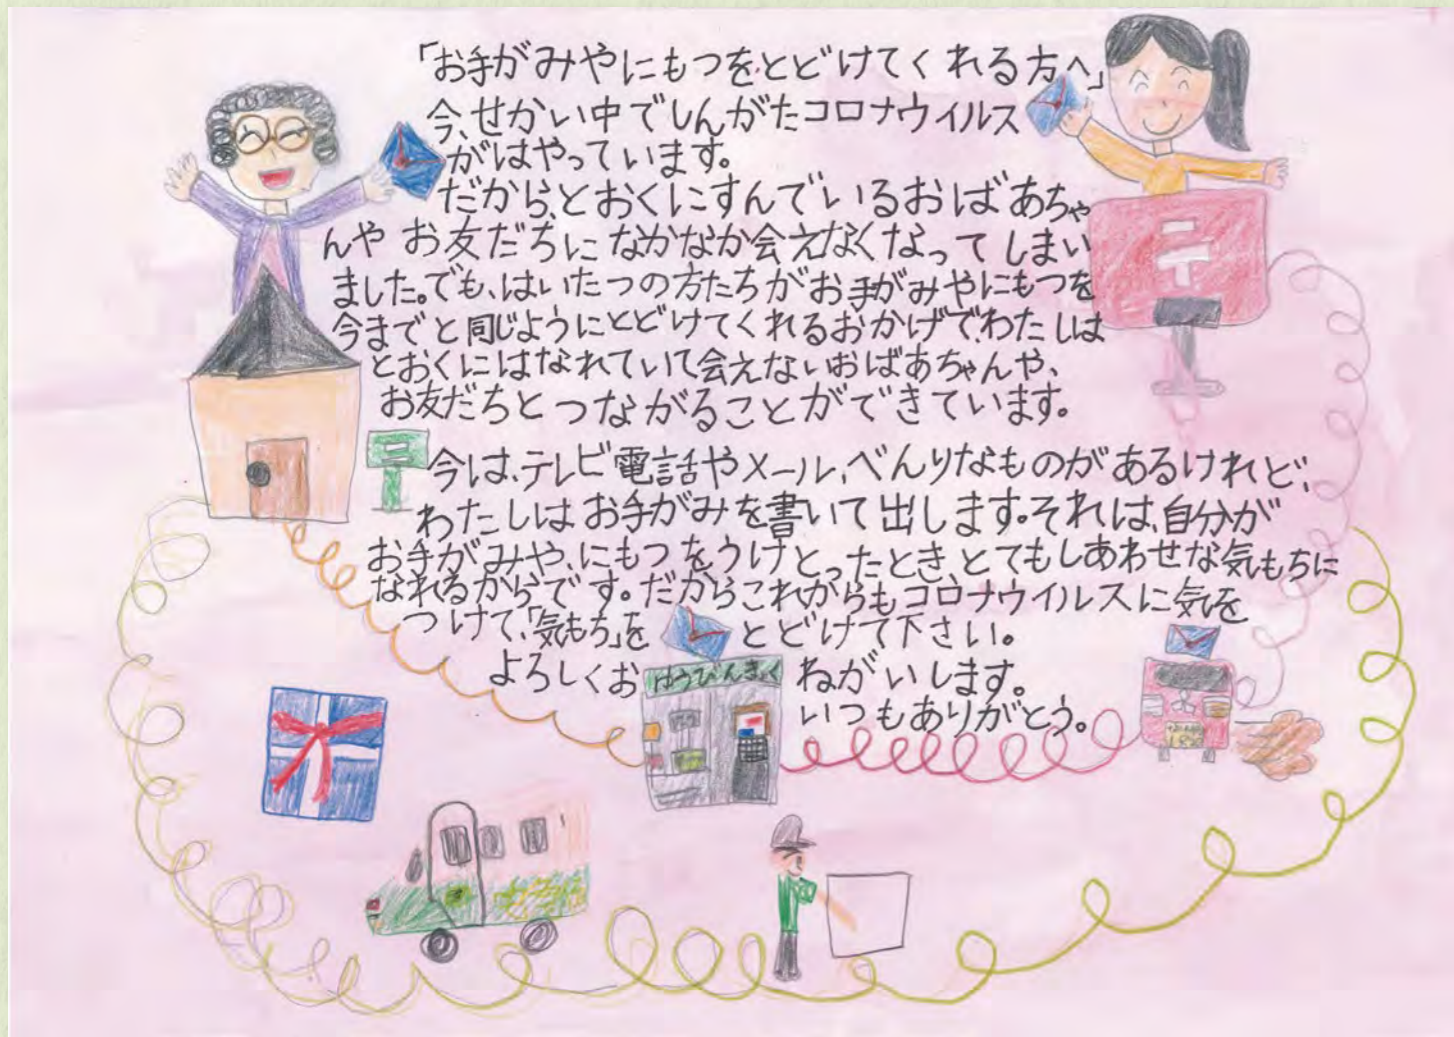 「お手がみやにもつをとどけてくれる方へ」
今、せかい中でしんがたコロナウイルス
がはやっています。
だから、とおくにすんでいるおばあちゃ
んや お友だちに なかなか会えなくなって しまい
ました。でも、はいたつの方たちがお手がみやにもつを
今までと同じようにとどけてくれるおかげで、わたしは
とおくにはなれていて会えないおばあちゃんや、
お友だちとつながることができています。
今は、テレビ電話やメール、べんりなものがあるけれど、
わたしはお手がみを書いて出します。それは、自分が
お手がみや、にもつをうけとったときとてもしあわせな気もちに
なれるからです。だからこれからもコロナウイルスに気を
つけて、「気もち」を とどけて下さい。
よろしくお ねがいします。
ゆうびんきょく
いつもありがとう。